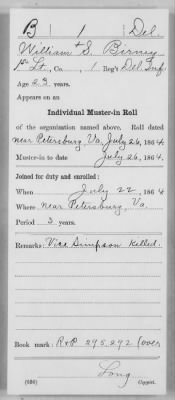 B | 1 | Del.
William S. Birney
1st Lt., Co. , 1 Reg't Del. Inf.
Age 23 years.
Appears on an
Individual Muster-in Roll
of the organization named above. Roll dated
near Petersburg, Va. July 26, 1864.
Muster-in to date July 26, 1864.
Joined for duty and enrolled:
When July 22, 1864
Where near Petersburg, Va.
Period 3 years.
Remarks: Vice Simpson Killed.
Book mark: R & P 295,292 (over
Long
(636) Copyist.